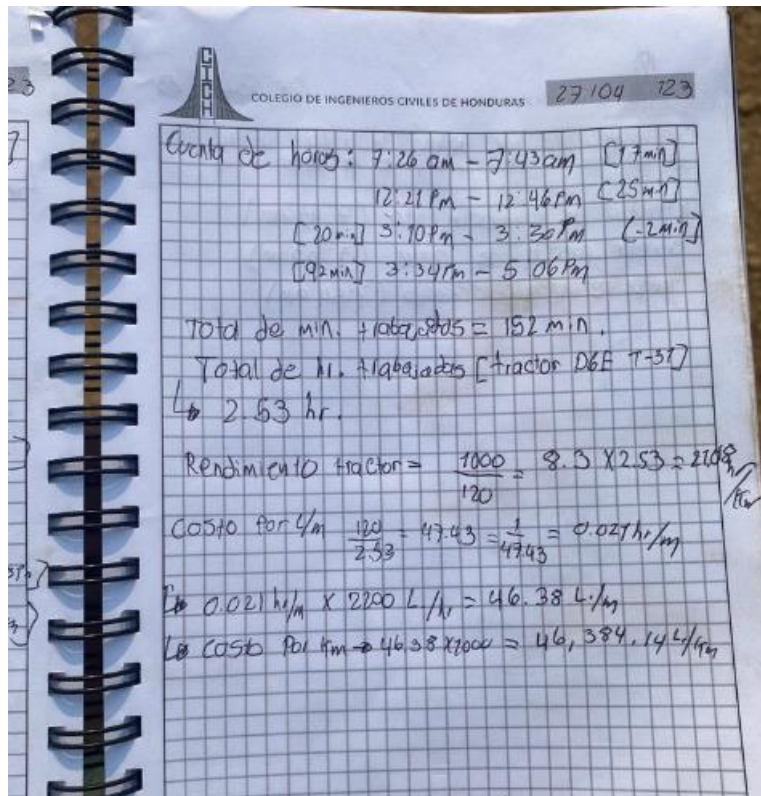 23
CICH
COLEGIO DE INGENIEROS CIVILES DE HONDURAS
27/04 /23
Cuenta de horas: 7:26 am - 7:43 am [17 min]
12:21 Pm - 12:46 Pm [25 min]
[20 min] 3:10 Pm - 3:30 Pm (-2 min)
[92 min] 3:34 Pm - 5:06 Pm
Total de min. trabajados = 152 min.
Total de hr. trabajadas [tractor D6E T-31]
↳ 2.53 hr.
Rendimiento tractor = 1000/120 = 8.3 X 2.53 = hr/Km
Costo Por L/m 120/2.53 = 47.43 = 1/47.43 = 0.021 hr/m
↳ 0.021 hr/m X 2200 L/hr = 46.38 L./m
↳ Costo Por Km → 46.38 X 1000 = 46,384.14 L/Km